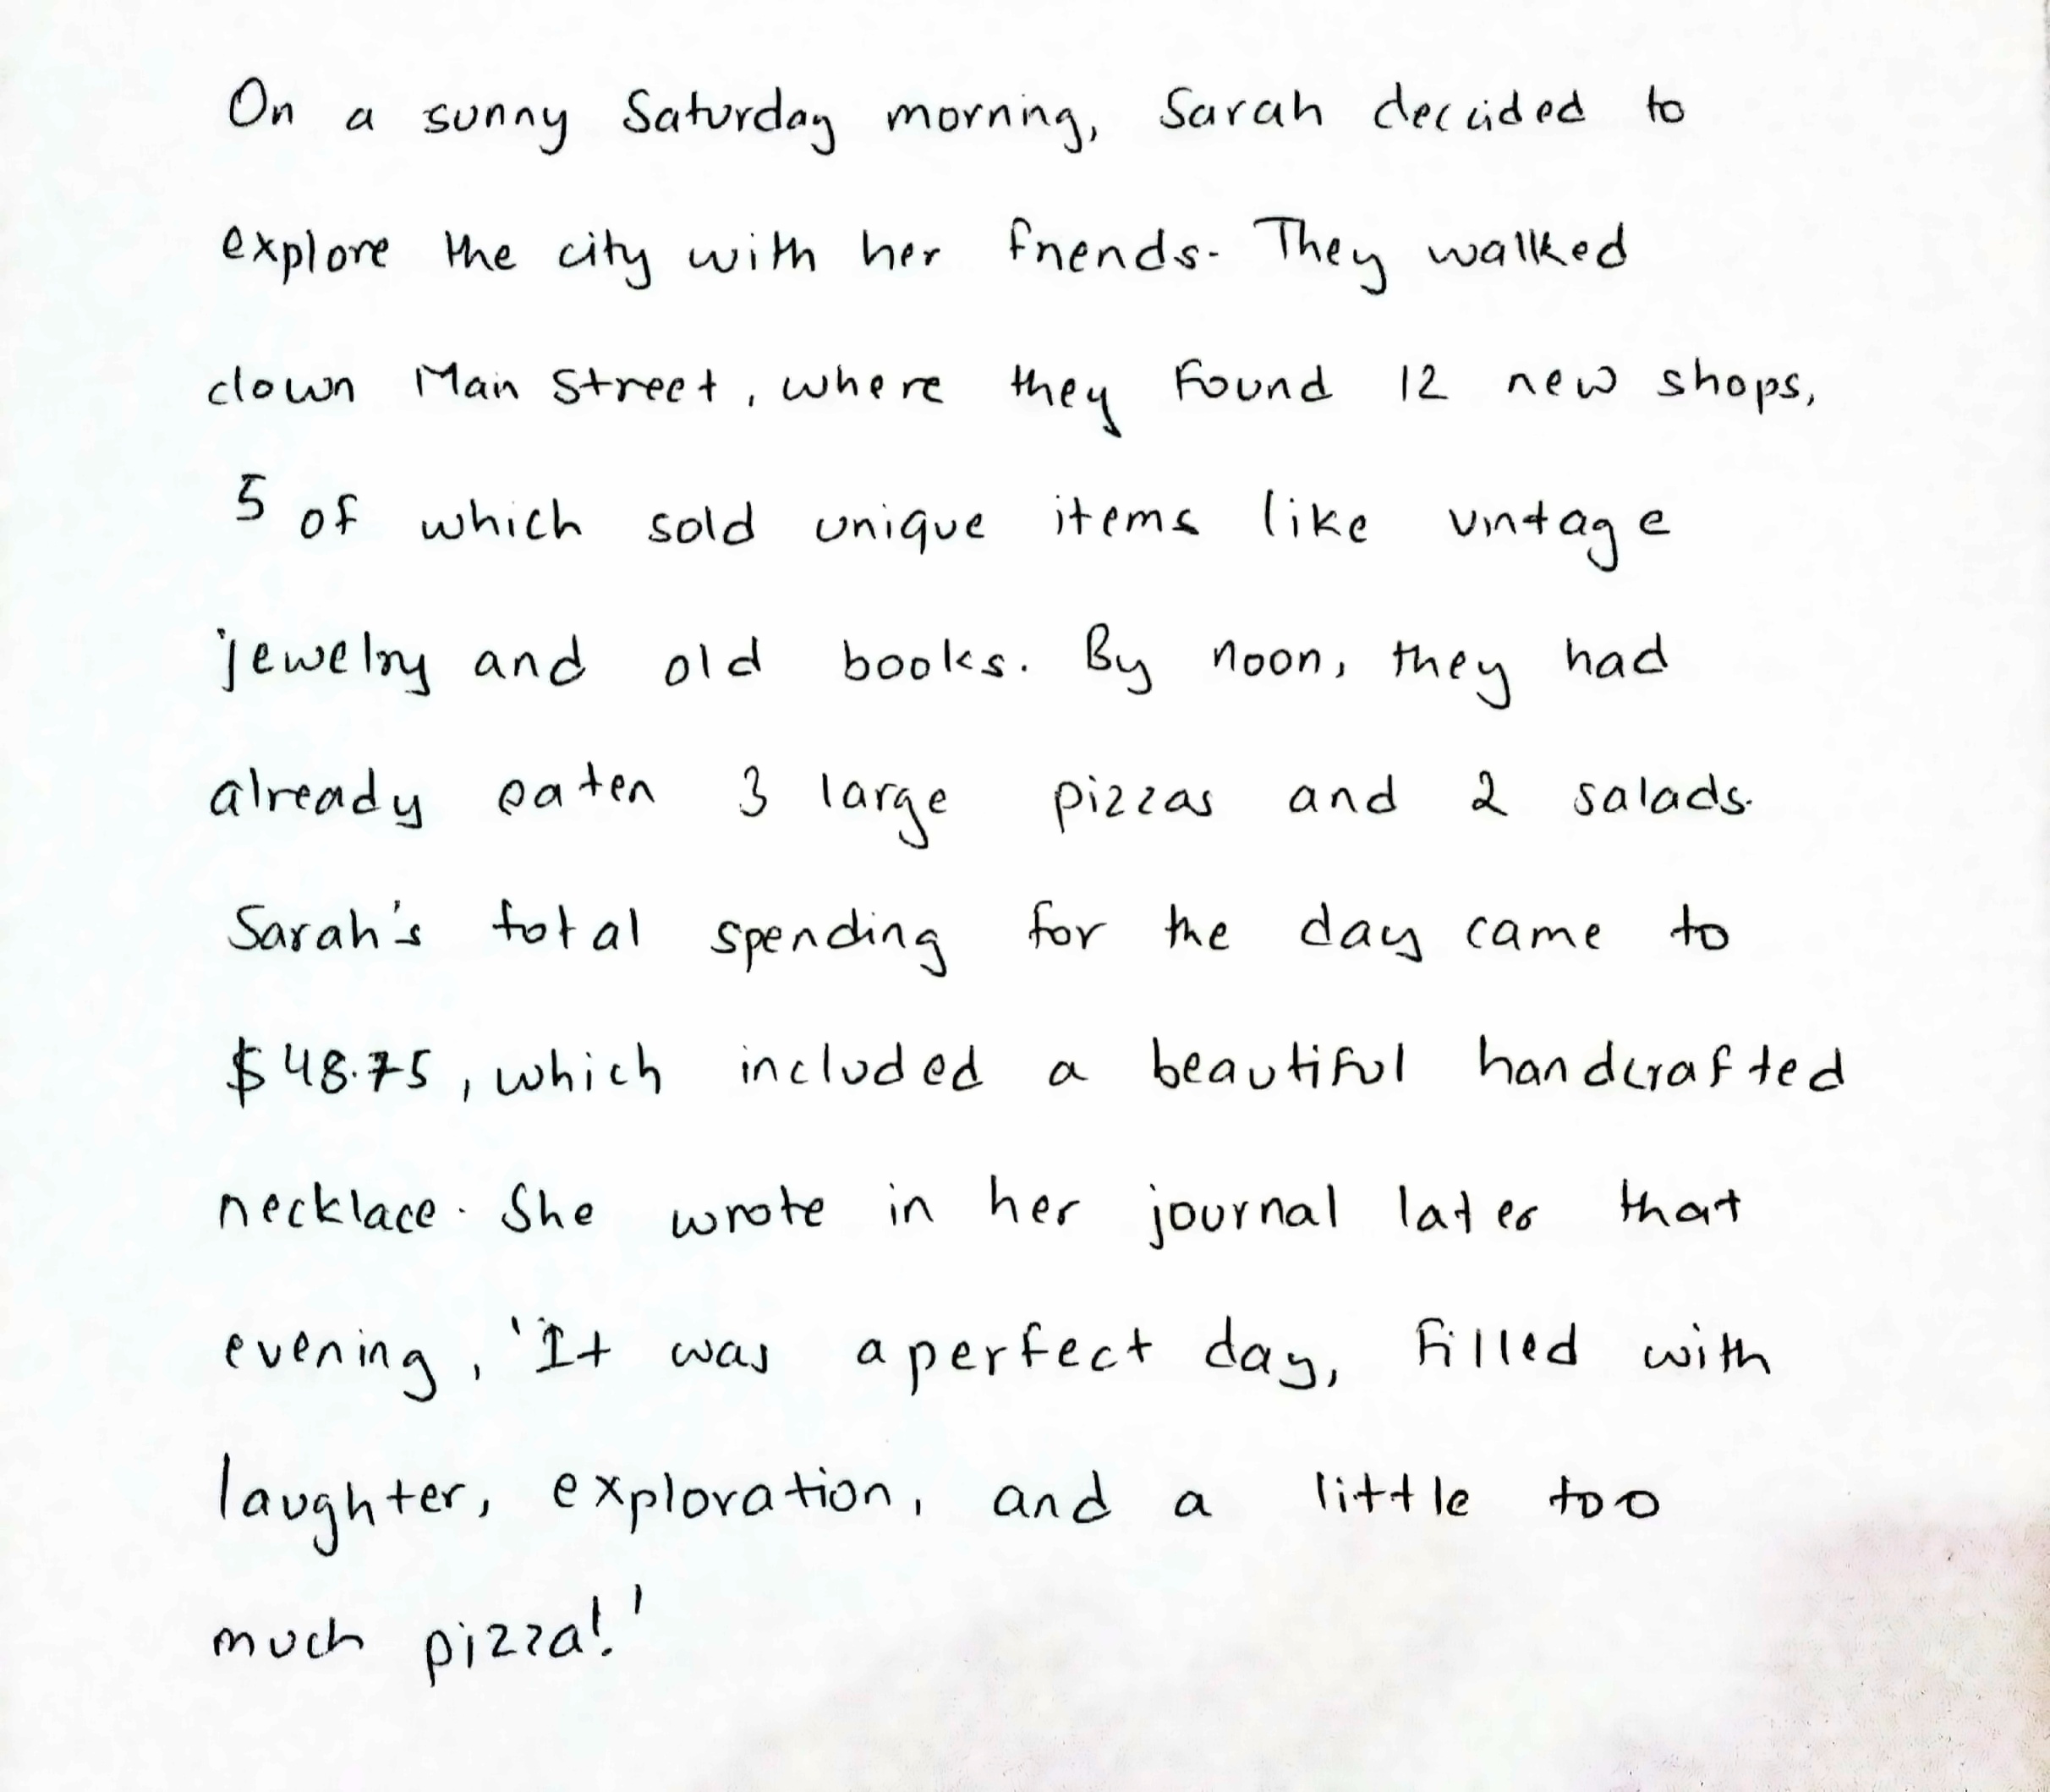 On a sunny Saturday morning, Sarah decided to
explore the city with her friends. They walked
down Main Street, where they found 12 new shops,
5 of which sold unique items like vintage
jewelry and old books. By noon, they had
already eaten 3 large pizzas and 2 salads.
Sarah's total spending for the day came to
$48.75, which included a beautiful handcrafted
necklace. She wrote in her journal later that
evening, 'It was a perfect day, filled with
laughter, exploration, and a little too
much pizza!'